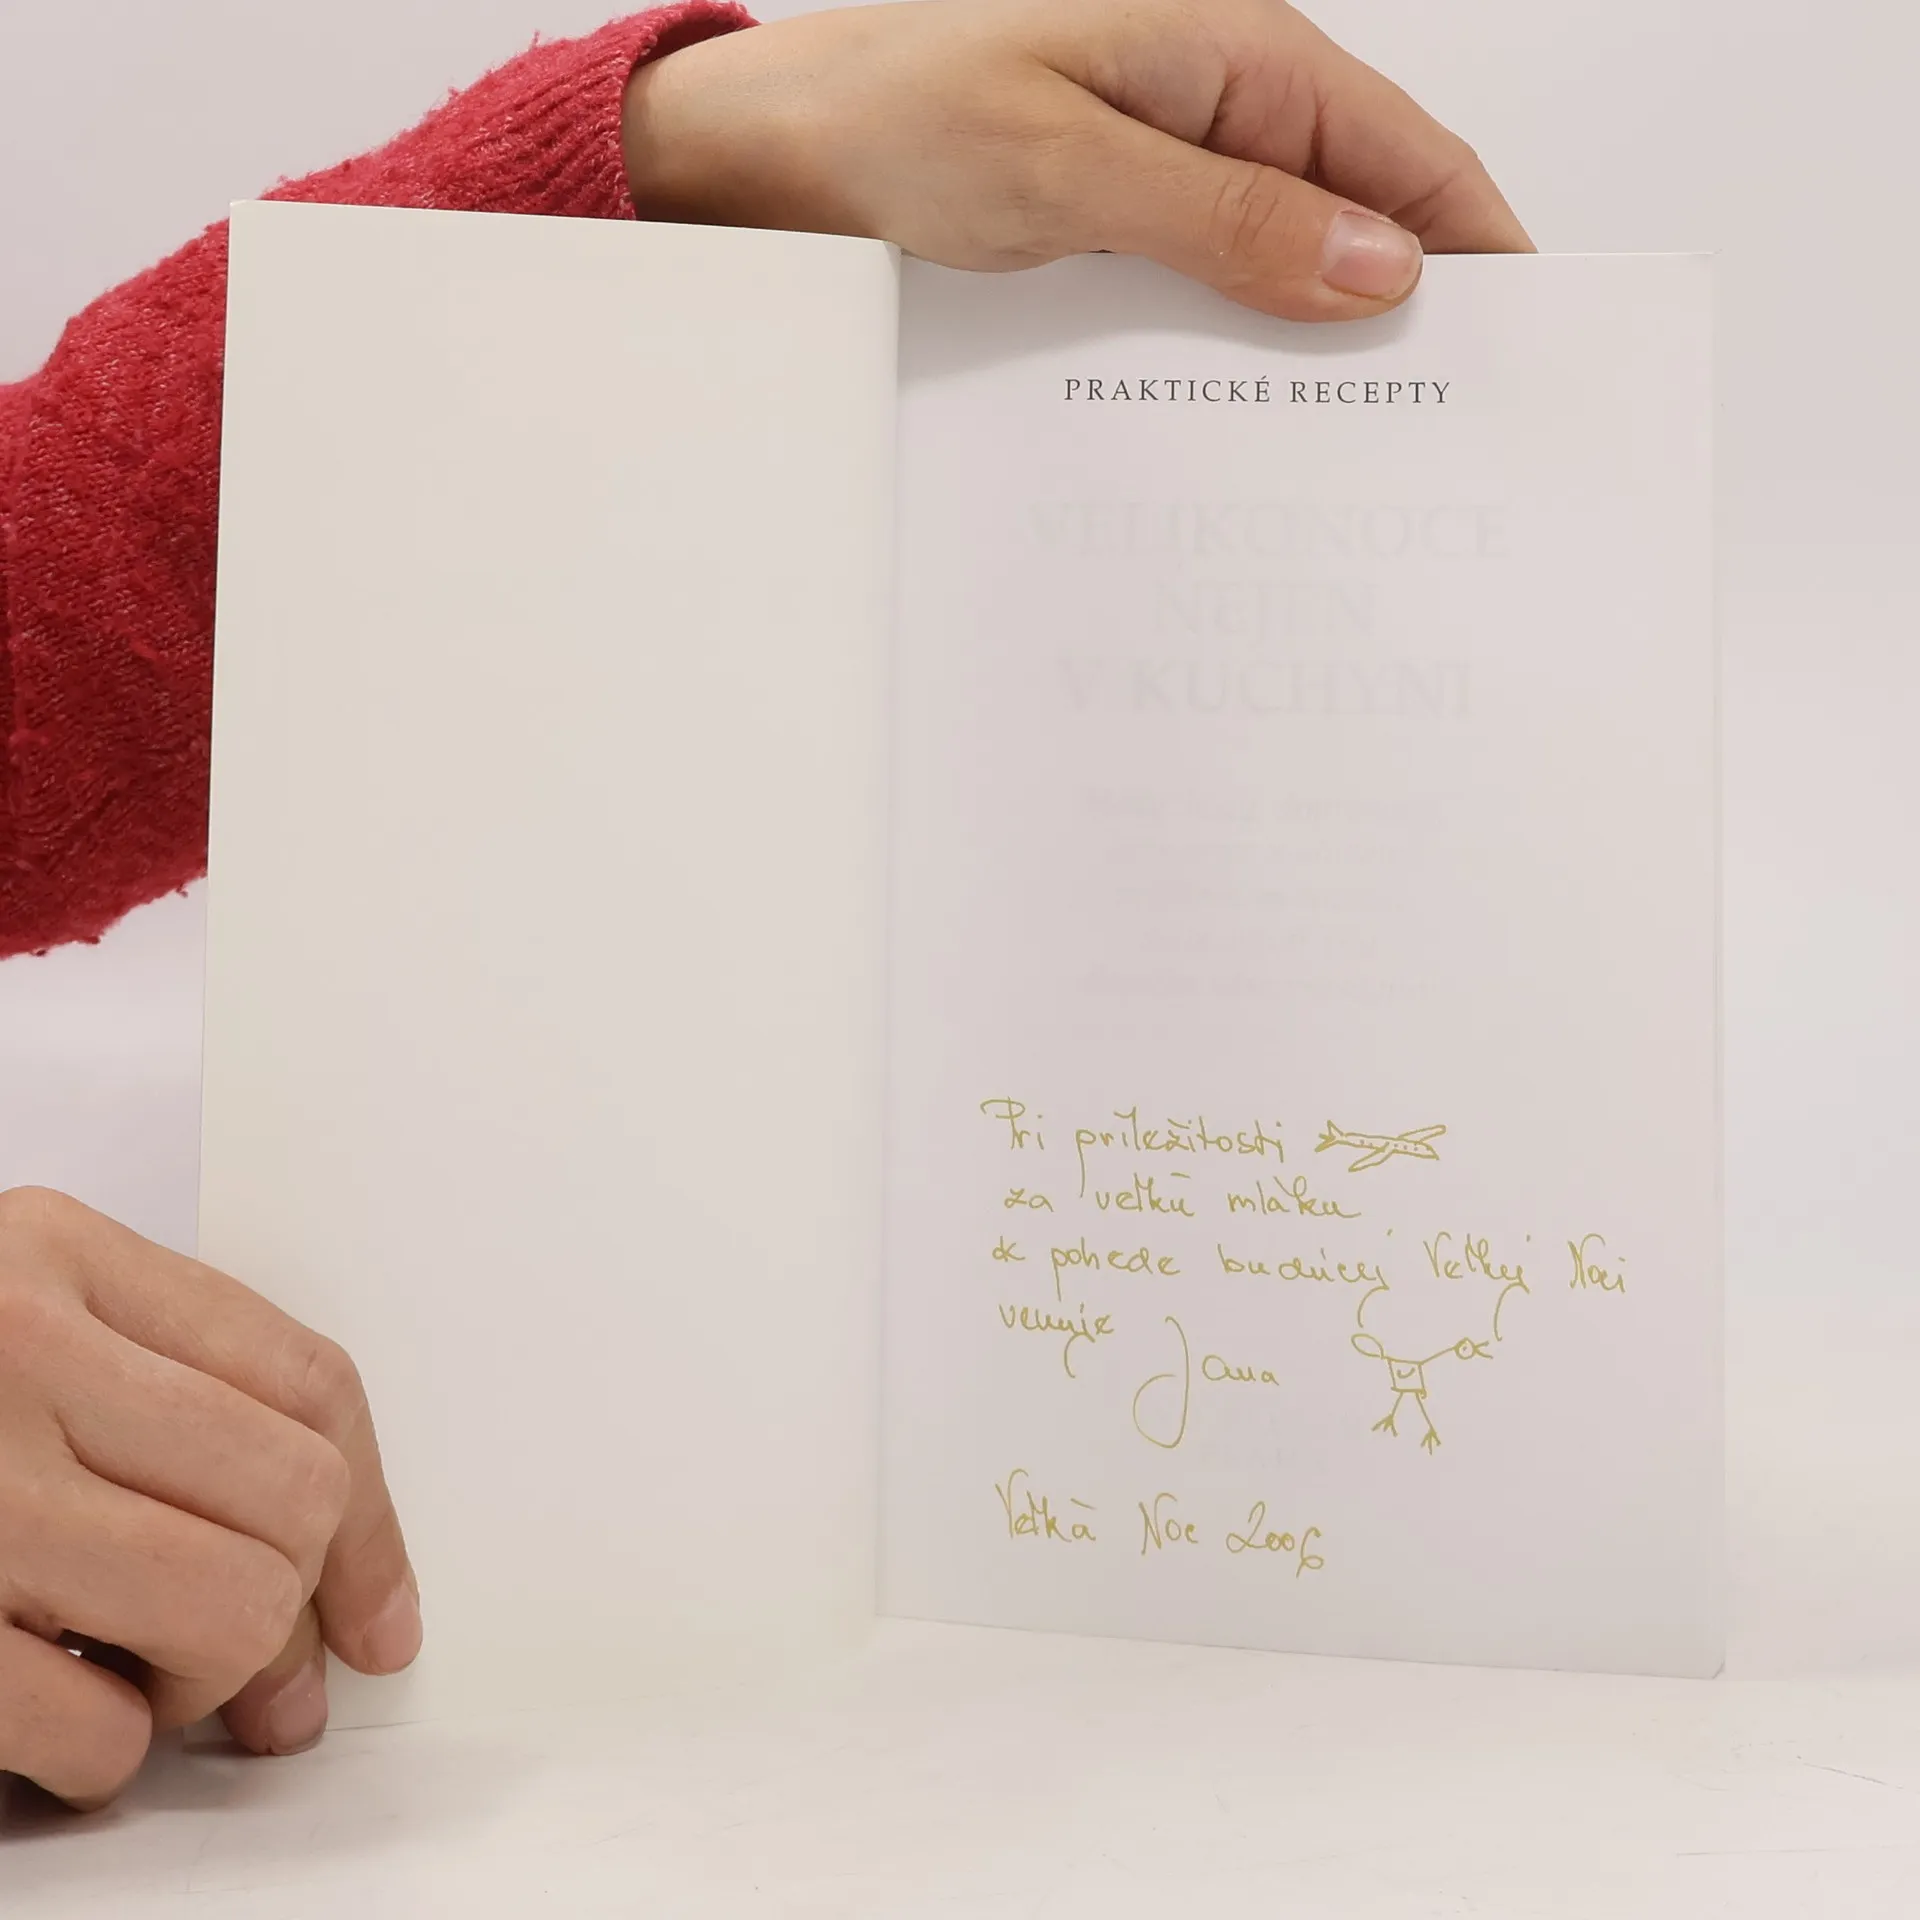 PRAKTICKÉ RECEPTY
VELIKONOCE
NEJEN
V KUCHYNI
Pri príležitosti
za veľkú mláku
k pohode budúcej Veľkej Noci
venuje Jana
Veľká Noc 2006